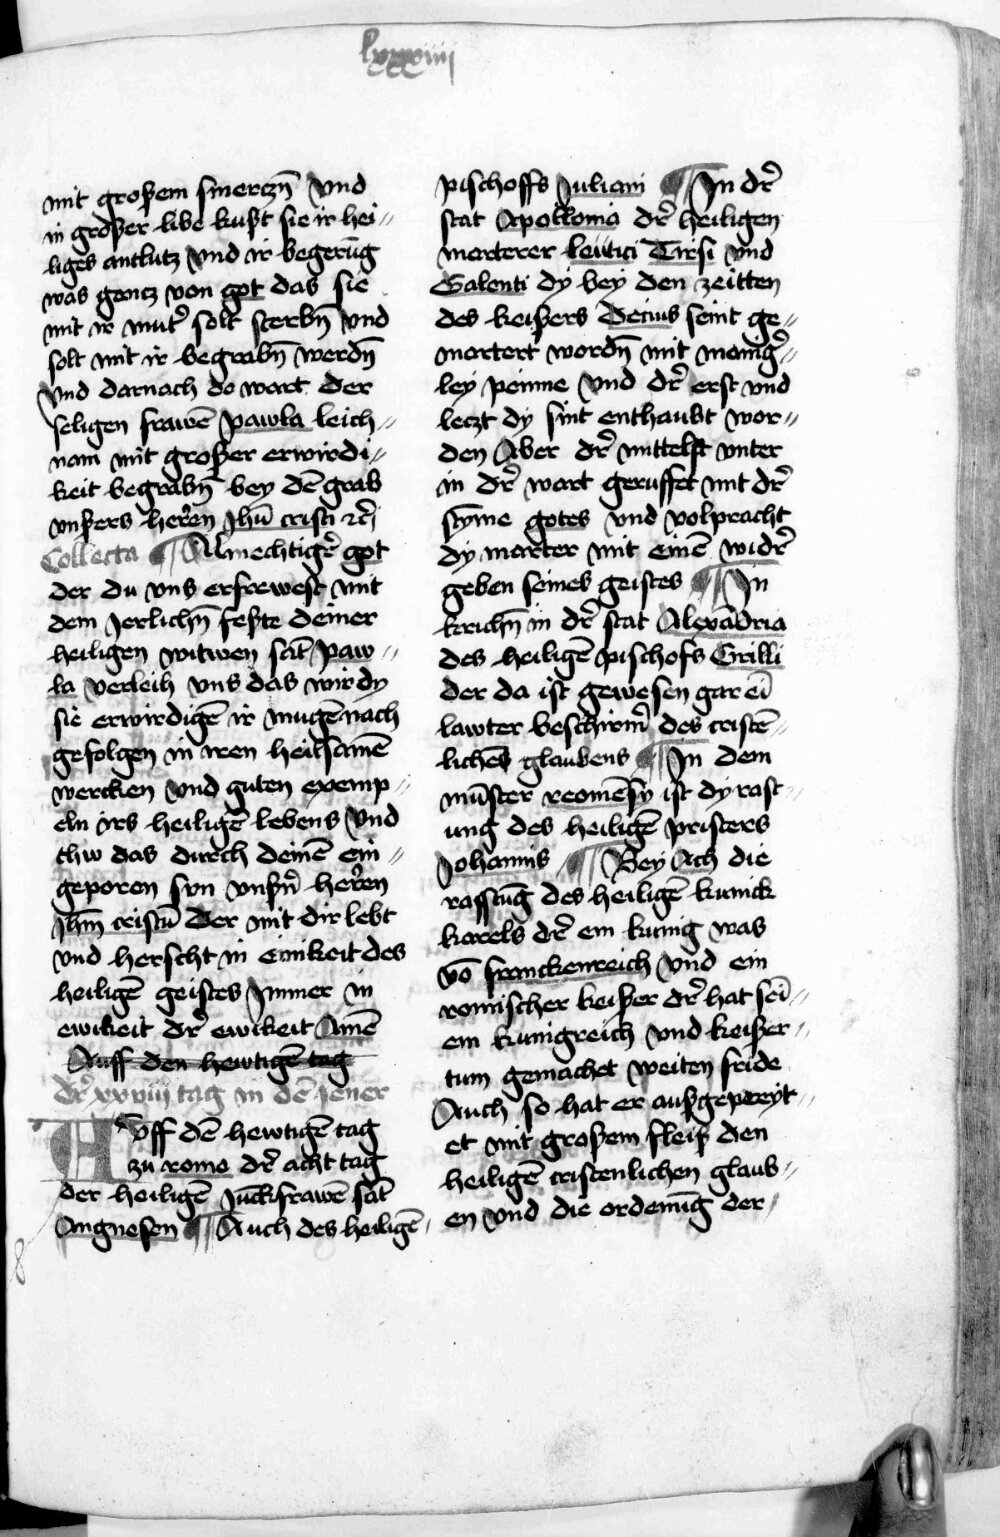 lxxxiiii
mit großem smerczn̄ vnd
in großer libe kußt sie ir hei„
liges antlutz vnd ir begerūg
was gancz von got das sie
mit ir mut͛ solt sterbn̄ vnd
solt mit ir begrabn̄ werdn̄
vnd darnach do wart der
seligen frawē pawla leich„
nam mit großer erwirdi„
keit begrabn̄ bey dē grab
vnßers herren Jhū cristi ꝛc̄
Collecta ¶ Almechtig͛ got
der du vns erfrewest mit
dem Jerlichn̄ feste deiner
heiligen witwen sāt paw„
la verleih vns das wir dy
sie erwirdigē ir mugē nach
gefolgen in iren heilsamē
wercken vnd guten exemp„
eln irs heiligē lebens vnd
thw das durch deinē ein„
geporen svn vnßn̄ herren
Jhm̄ cristū der mit dir lebt
vnd herscht in einikeit des
heiligē geistes Jmmer in
ewikeit d͛ ewikeit Amē
Auff den hewtigē tag
d͛ xxviii tag in dē Jener
Avff dē hewtigē tag
zu rome d͛ acht tag
der heiligē Juckfrawē sāt
Angnesen ¶ Auch des heiligē
pischoffs Juliani ¶ In d͛
stat Apollonia d͛ heiligen
marterer leutici Tirsi vnd
Galenti dy bey den zeitten
des keißers Decius seint ge„
martert wordn̄ mit manig͛„
ley peinne vnd d͛ erst vnd
leczt dy sint enthaubt wor„
den Aber d͛ mittelst vnter
in d͛ wart geruffet mit d͛
styme gotes vnd volpracht
dy marter mit einē wid͛
geben seines geistes ¶ In
krichn̄ in d͛ stat Alexādria
des heiligē pischofs Cirilli
der da ist gewesen gar eī
lawter beschirm͛ des cristē„
lichens glaubens ¶ In dem
mūster reomēsy ist dy rast„
ung des heiligē pristers
Johannis ¶ Bey Ach die
rasstūg des heiligē kunick
karels d͛ ein kunig was
vō franckenreich vnd ein
romischer keißer d͛ hat seī„
em kunigreich vnd keißer„
tum gemachet weiten fride
Auch so hat er außgepreyt„
et mit großem fleiß den
heiligē cristenlichen glaub„
en vnd die ordenūg der